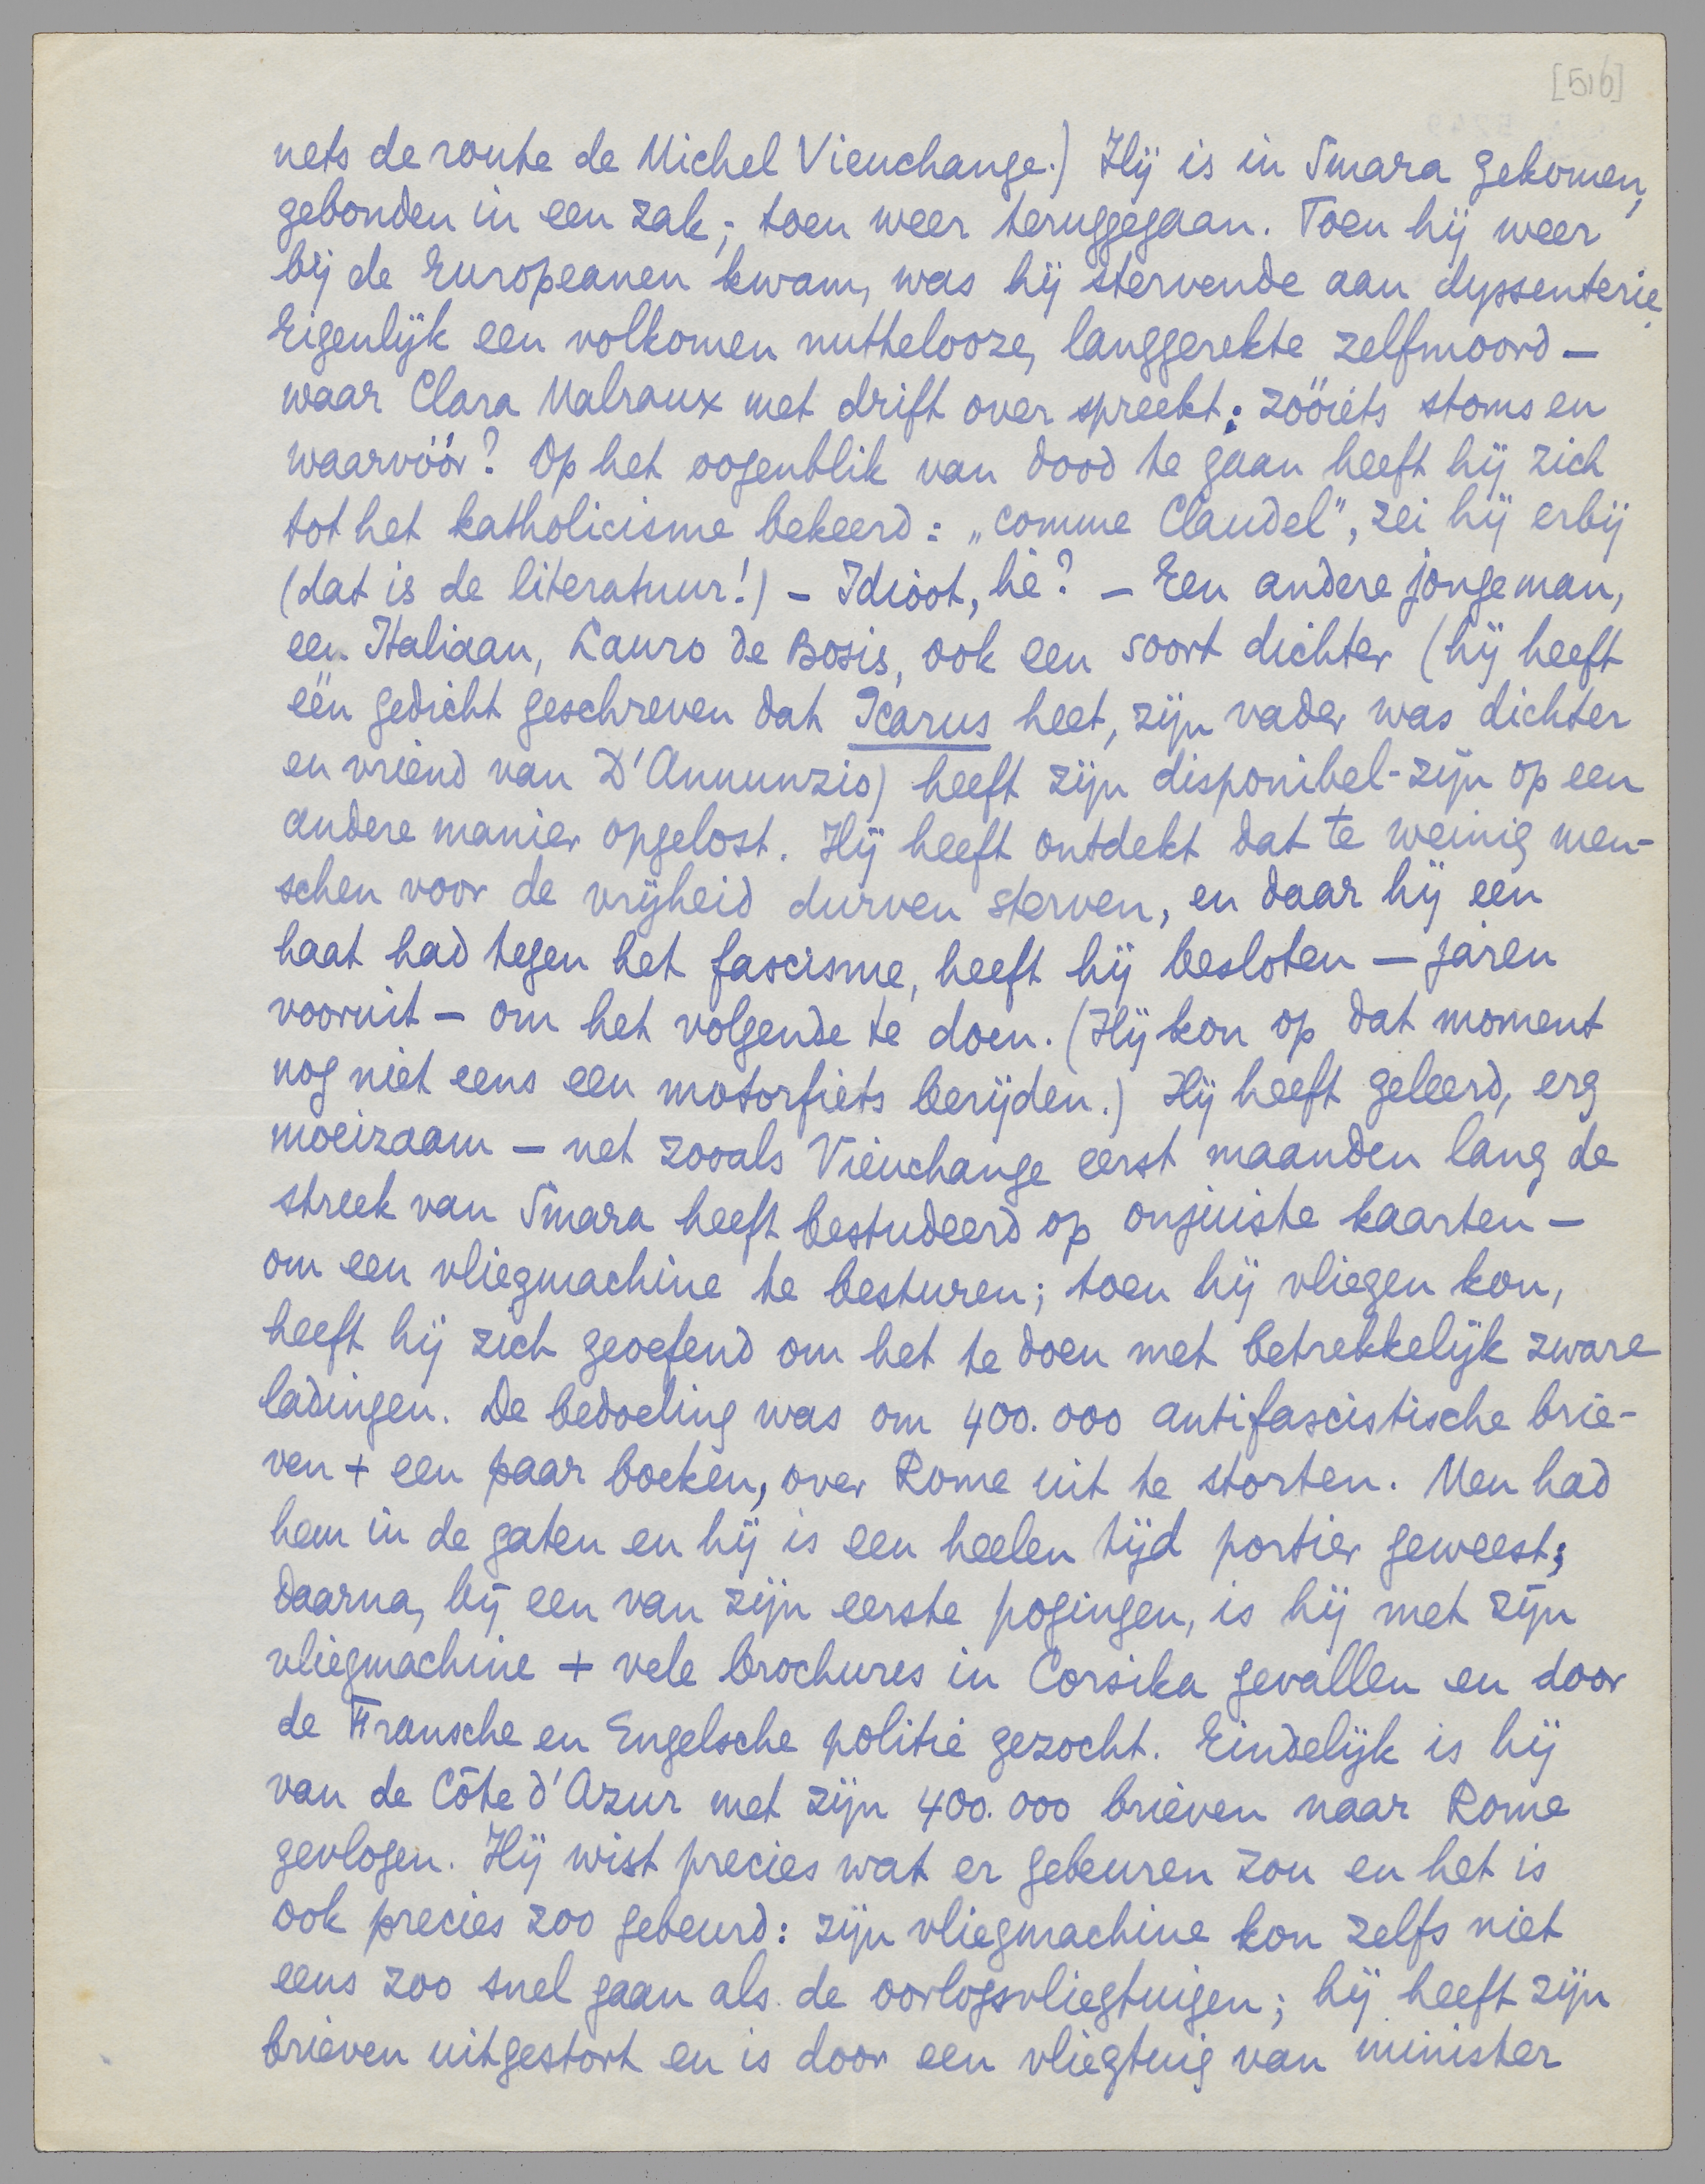 [516]
nets de route de Michel Vieuchange.) Hij is in Smara gekomen,
gebonden in een zak; toen weer teruggegaan. Toen hij weer
bij de Europeanen kwam, was hij stervende aan dyssenterie.
Eigenlijk een volkomen nuttelooze, langgerekte zelfmoord —
waar Clara Malraux met drift over spreekt: zóóiets stoms en
waarvóór? Op het oogenblik van dood te gaan heeft hij zich
tot het katholicisme bekeerd: „comme Claudel", zei hij erbij
(dat is de literatuur!) — Idioot, hè? — Een andere jongeman,
een Italiaan, Lauro de Bosis, ook een soort dichter (hij heeft
één gedicht geschreven dat Icarus heet, zijn vader was dichter
en vriend van D'Annunzio) heeft zijn disponibel-zijn op een
andere manier opgelost. Hij heeft ontdekt dat te weinig men-
schen voor de vrijheid durven sterven, en daar hij een
haat had tegen het fascisme, heeft hij besloten — jaren
vooruit — om het volgende te doen. (Hij kon op dat moment
nog niet eens een motorfiets berijden.) Hij heeft geleerd, erg
moeizaam — net zooals Vieuchange eerst maanden lang de
streek van Smara heeft bestudeerd op onjuiste kaarten —
om een vliegmachine te besturen; toen hij vliegen kon,
heeft hij zich geoefend om het te doen met betrekkelijk zware
ladingen. De bedoeling was om 400.000 antifascistische brie-
ven + een paar boeken, over Rome uit te storten. Men had
hem in de gaten en hij is een heelen tijd portier geweest;
daarna, bij een van zijn eerste pogingen, is hij met zijn
vliegmachine + vele brochures in Corsika gevallen en door
de Fransche en Engelsche politie gezocht. Eindelijk is hij
van de Côte d'Azur met zijn 400.000 brieven naar Rome
gevlogen. Hij wist precies wat er gebeuren zou en het is
ook precies zoo gebeurd: zijn vliegmachine kon zelfs niet
eens zoo snel gaan als de oorlogsvliegtuigen; hij heeft zijn
brieven uitgestort en is door een vliegtuig van minister